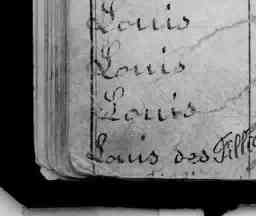 Louis
Louis
Louis
Louis des